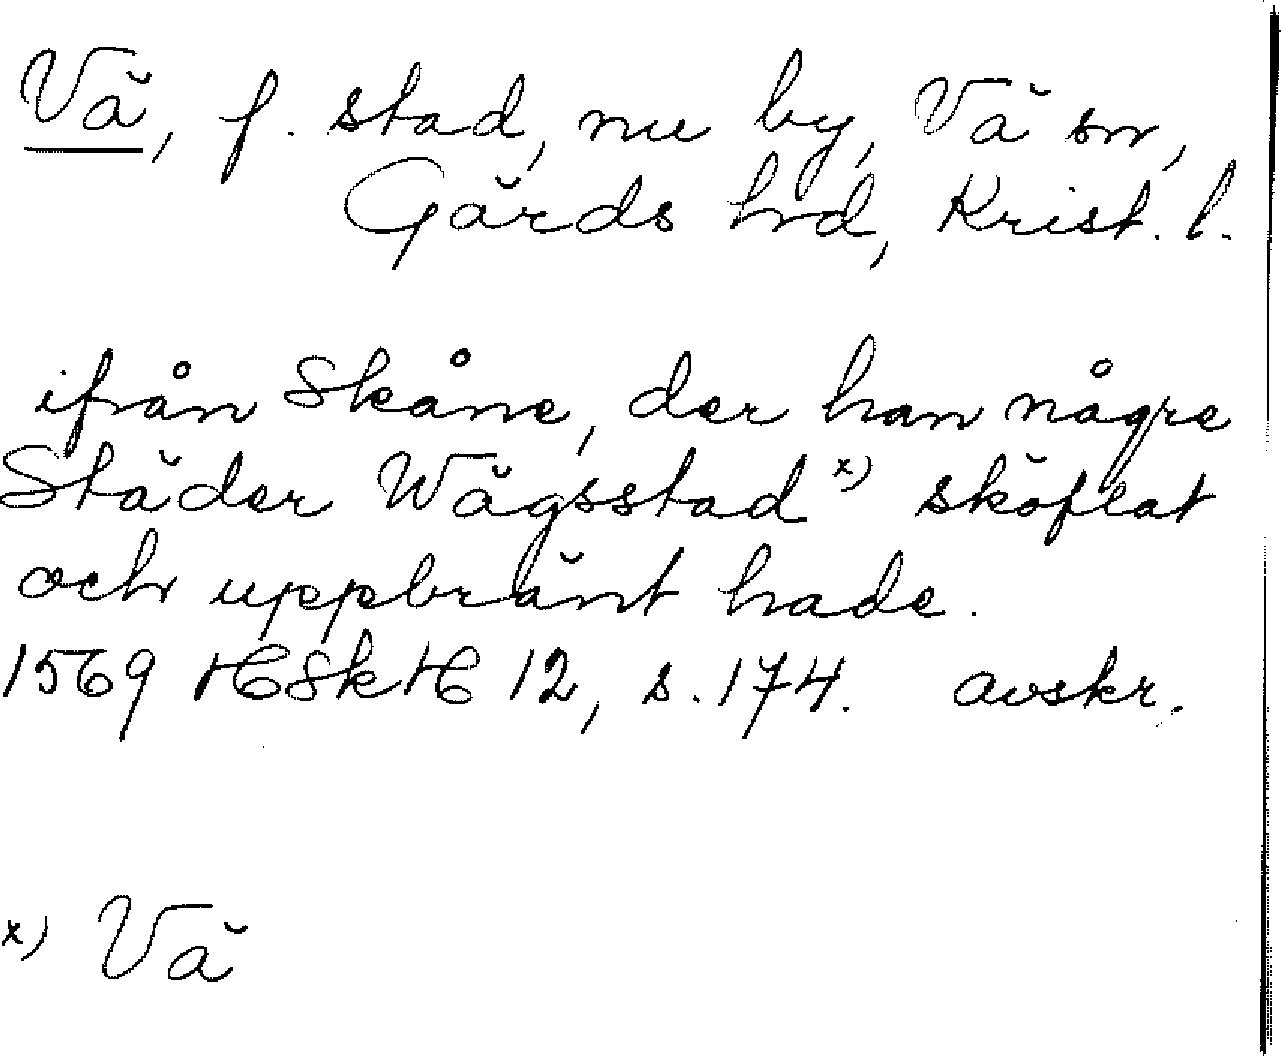 Vä, f. stad, nu by, Vä sn,
Gärds hd, Krist. l.
ifrån Skåne, der han någre
Städer Wägsstad x) sköflat
och uppbränt hade.
1569 HSkH 12, s. 174. avskr.
x) Vä